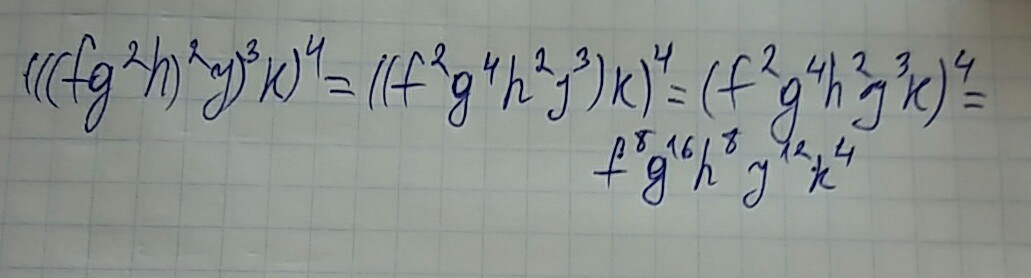 (((fg²h)²y)³k)⁴ = ((f²g⁴h²y³)k)⁴ = (f²g⁴h²y³k)⁴ =
f⁸g¹⁶h⁸y¹²k⁴